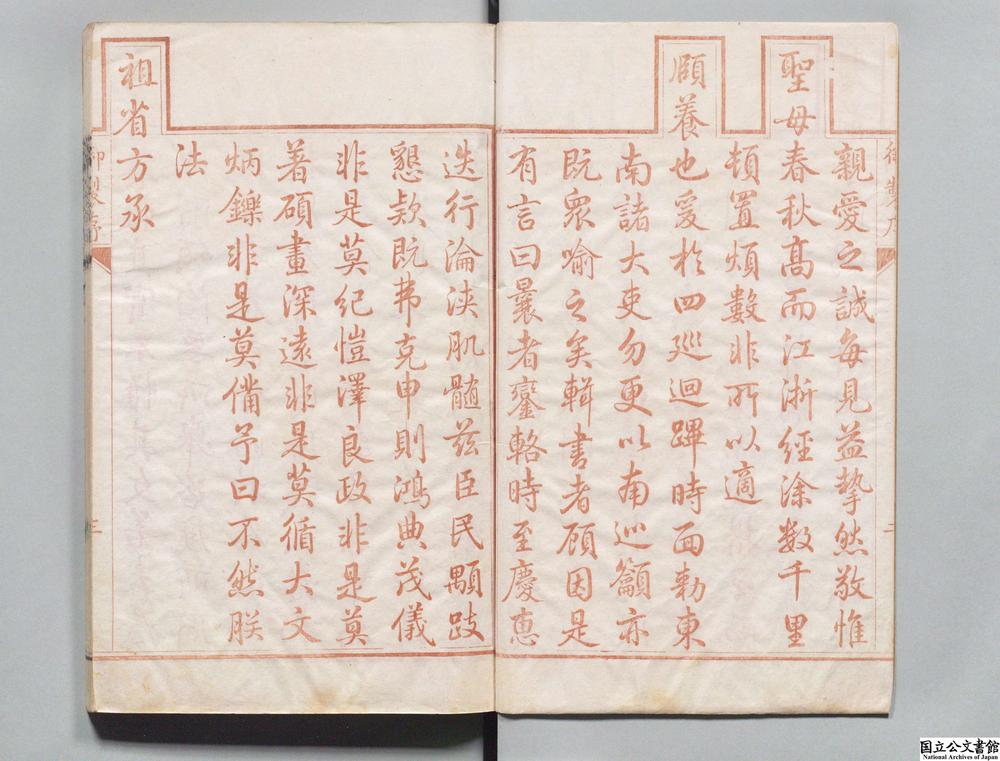 親愛之誠每見益摯然敬惟
聖母春秋高而江浙經涂數千里
頓置煩數非所以適
頤養也爰於四巡迴蹕時面勅東
南諸大吏勿更以南巡籲亦
既衆喻之矣輯書者顧因是
有言曰曩者鑾輅時至慶惠
迭行淪浹肌髓茲臣民顒跂
懇款既弗克申則鴻典茂儀
非是莫紀愷澤良政非是莫
著碩畫深遠非是莫循大文
炳鑠非是莫備予曰不然朕
法
祖省方承
御製序
二
御製序
三
国立公文書館
National Archives of Japan